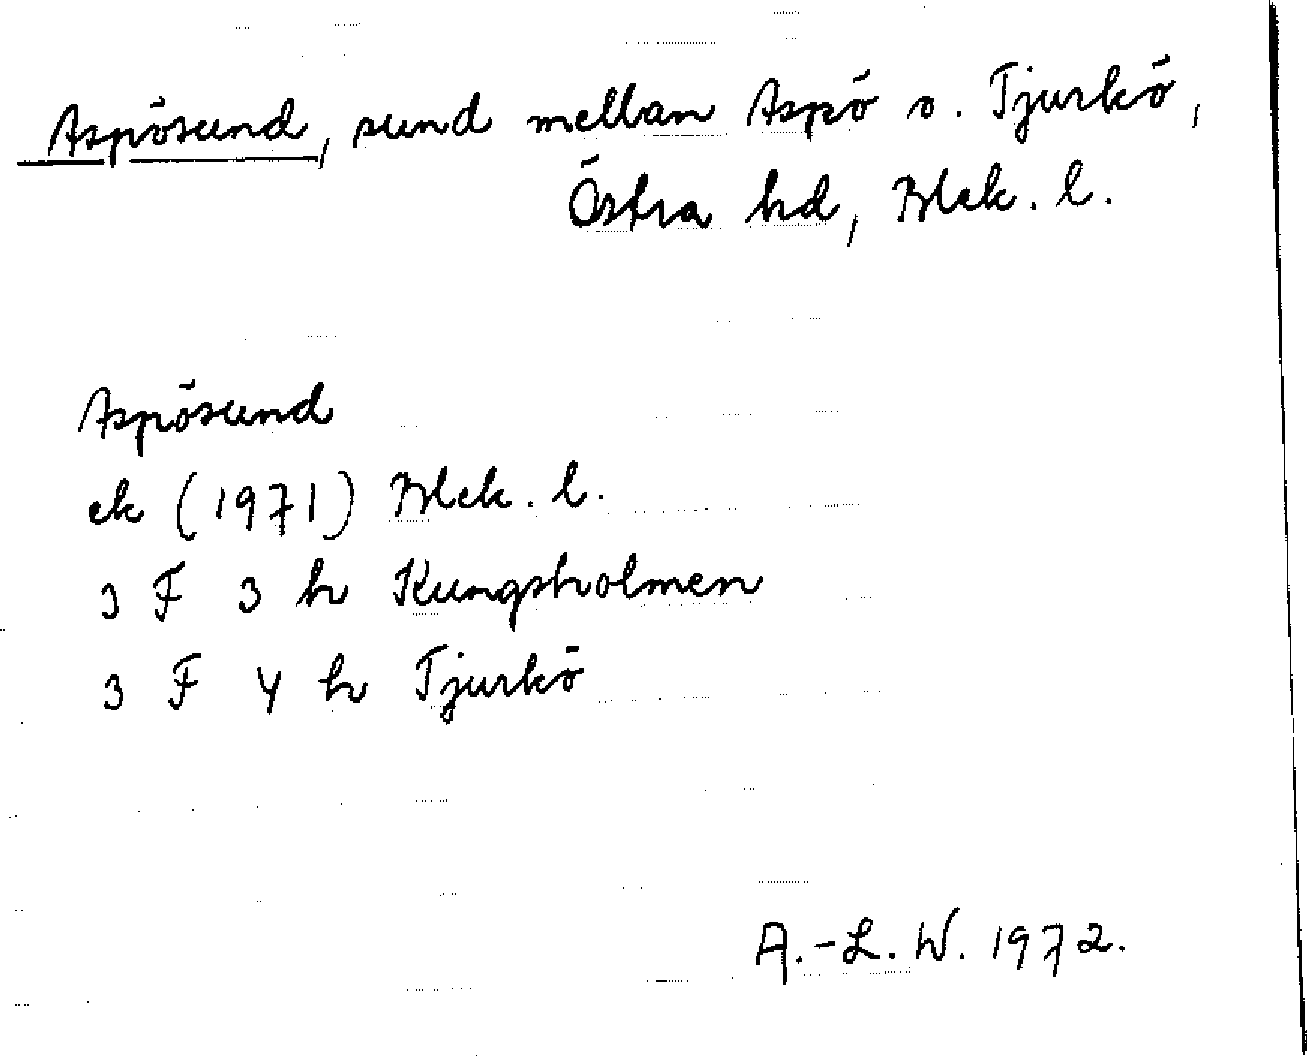 Aspösund, sund mellan Aspö o. Tjurkö,
Östra hd, Blek. l.
Aspösund
ek (1971) Blek. l.
3 F 3 h Kungsholmen
3 F 4 h Tjurkö
A.-L. W. 1972.